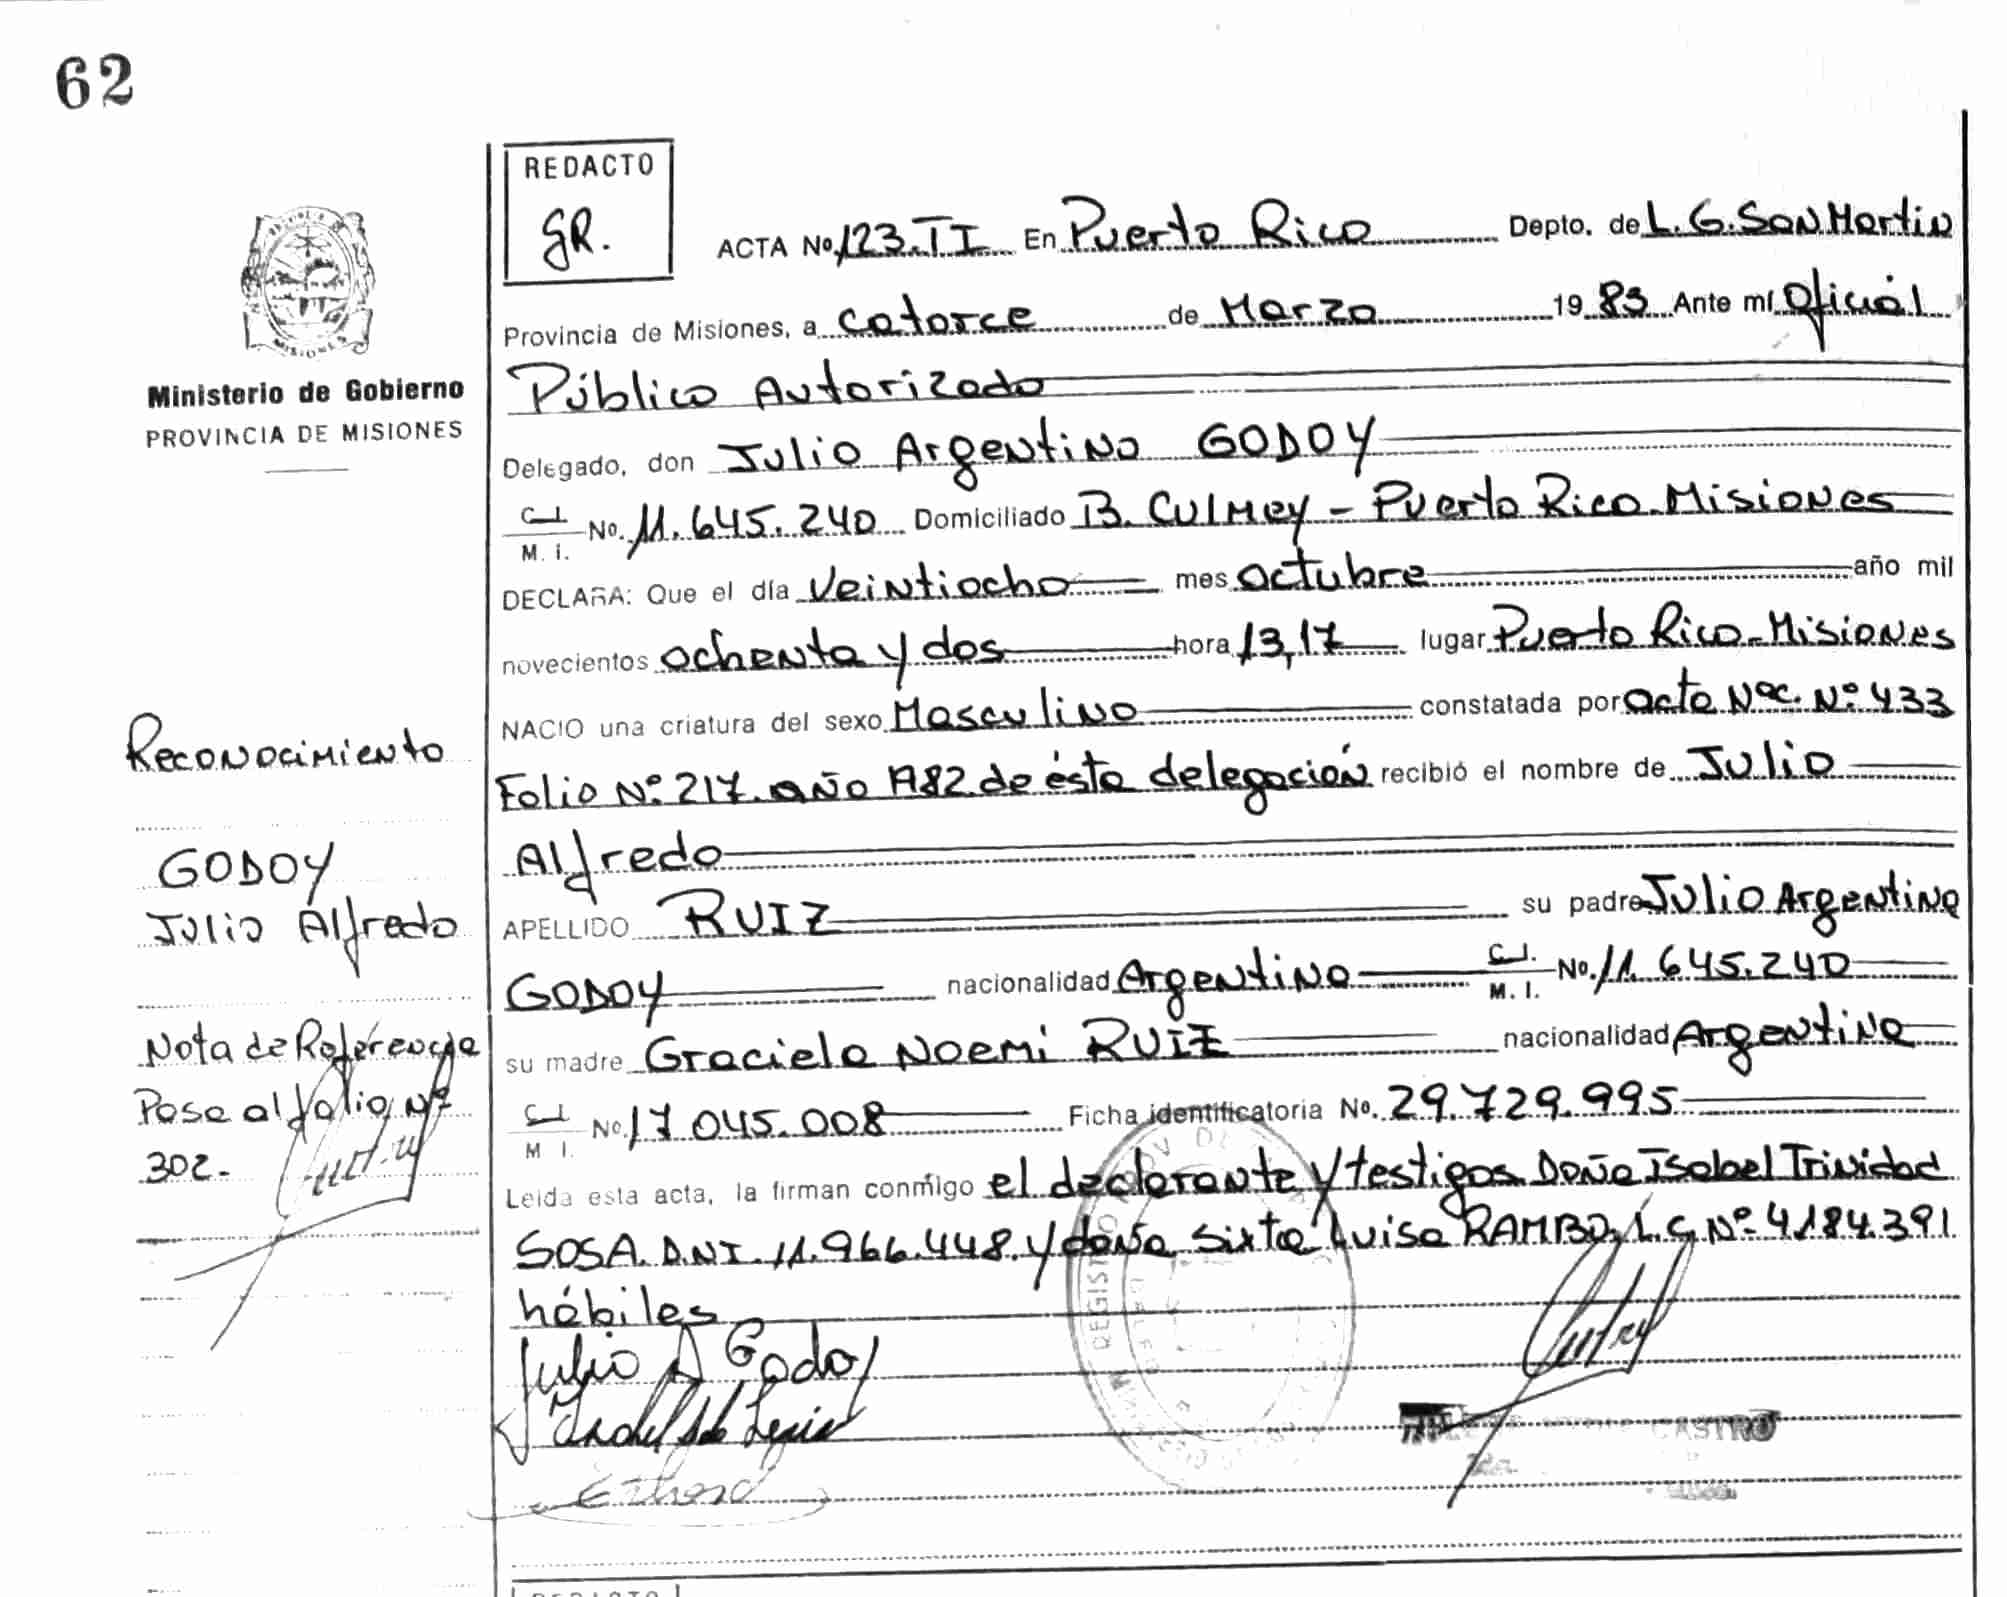 62
REDACTO
GR.
ACTA No. 123.II En Puerto Rico Depto. de L. G. San Martin
Provincia de Misiones, a catorce de Marzo 1983 Ante mí Oficial
Público Autorizado
Ministerio de Gobierno
PROVINCIA DE MISIONES
Delegado, don Julio Argentino GODOY
C. I. / M. I. No. 11.645.240 Domiciliado B. Culmey - Puerto Rico. Misiones
DECLARA: Que el día Veintiocho mes octubre año mil
novecientos ochenta y dos hora 13,17 lugar Puerto Rico - Misiones
NACIO una criatura del sexo Masculino constatada por acta Nac. Nº 433
Folio Nº 217. año 1982 de ésta delegación recibió el nombre de Julio
Alfredo
APELLIDO RUIZ su padre Julio Argentino
GODOY nacionalidad Argentino C. I. / M. I. No. 11.645.240
su madre Graciela Noemi RUIZ nacionalidad Argentina
C. I. / M. I. No. 17 045.008 Ficha identificatoria No. 29.729.995
Leida esta acta, la firman conmigo el declarante y testigos Doña Isabel Trinidad
SOSA. D.N.I. 11.966.448. y doña Sixta Luisa RAMBO, L.C. Nº 4184.391
hábiles
Julio A Godoy
CASTRO
Reconocimiento
GODOY
Julio Alfredo
Nota de Referencia
Pase al folio Nº
302.-
REDACTO